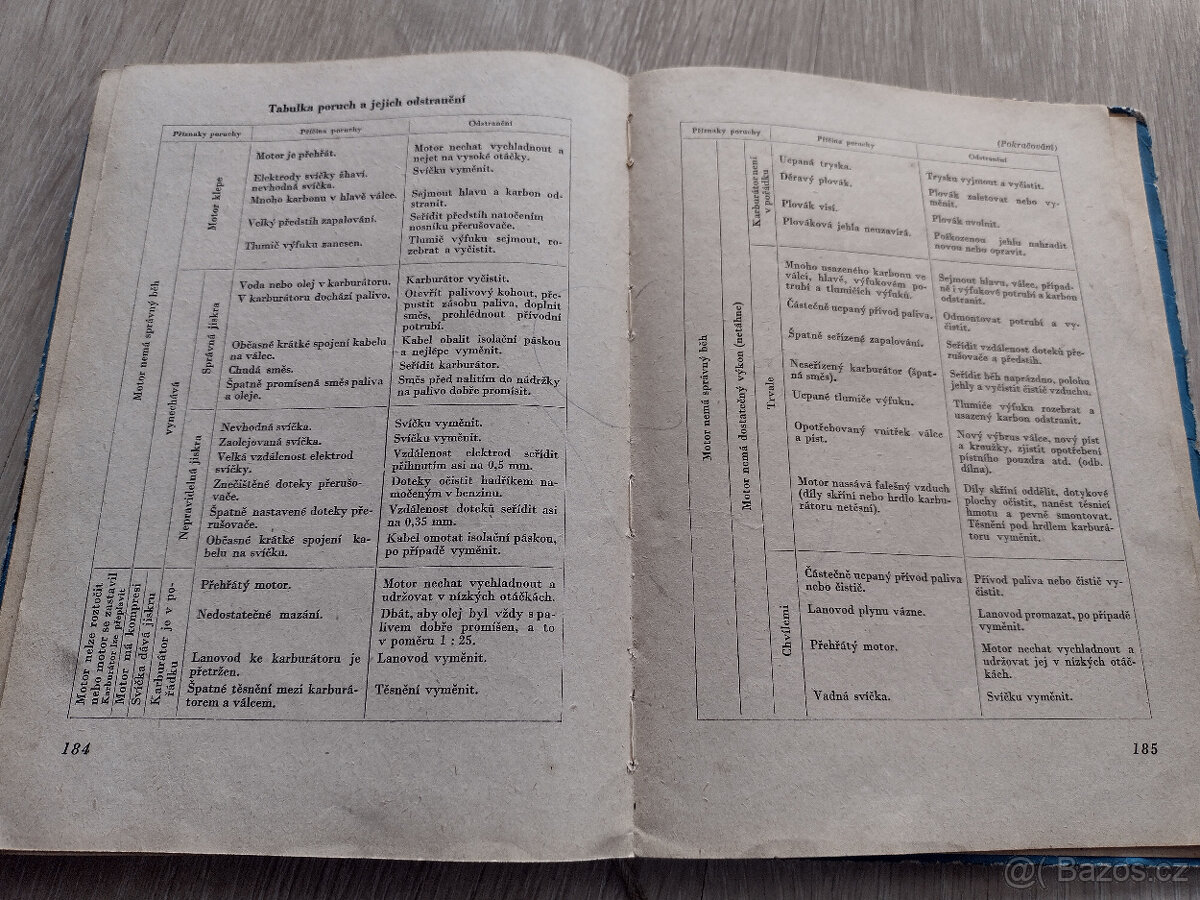 Tabulka poruch a jejich odstranění
Příznaky poruchy
Příčina poruchy
Odstranění
Motor nemá správný běh
Motor klepe
Motor je přehřát.
Motor nechat vychladnout a
nejet na vysoké otáčky.
Elektrody svíčky žhaví.
nevhodná svíčka.
Svíčku vyměnit.
Mnoho karbonu v hlavě válce.
Sejmout hlavu a karbon od-
stranit.
Velký předstih zapalování.
Seřídit předstih natočením
nosníku přerušovače.
Tlumič výfuku zanesen.
Tlumič výfuku sejmout, ro-
zebrat a vyčistit.
vynechává
Správná jiskra
Voda nebo olej v karburátoru.
Karburátor vyčistit.
V karburátoru dochází palivo.
Otevřít palivový kohout, pře-
pustit zásobu paliva, doplnit
směs, prohlédnout přívodní
potrubí.
Občasné krátké spojení kabelu
na válec.
Kabel obalit isolační páskou
a nejlépe vyměnit.
Chudá směs.
Seřídit karburátor.
Špatně promísená směs paliva
a oleje.
Směs před nalitím do nádržky
na palivo dobře promísit.
Nepravidelná jiskra
Nevhodná svíčka.
Svíčku vyměnit.
Zaolejovaná svíčka.
Svíčku vyměnit.
Velká vzdálenost elektrod
svíčky.
Vzdálenost elektrod seřídit
přihnutím asi na 0,5 mm.
Znečištěné doteky přerušo-
vače.
Doteky očistit hadříkem na-
močeným v benzinu.
Špatně nastavené doteky pře-
rušovače.
Vzdálenost doteků seřídit asi
na 0,35 mm.
Občasné krátké spojení ka-
belu na svíčku.
Kabel omotat isolační páskou,
po případě vyměnit.
Motor nelze roztočit
nebo motor se zastavil
Karburátor lze přeplavit
Motor má kompresi
Svíčka dává jiskru
Karburátor je v po-
řádku
Přehřátý motor.
Motor nechat vychladnout a
udržovat v nízkých otáčkách.
Nedostatečné mazání.
Dbát, aby olej byl vždy s pa-
livem dobře promíšen, a to
v poměru 1 : 25.
Lanovod ke karburátoru je
přetržen.
Lanovod vyměnit.
Špatné těsnění mezi karburá-
torem a válcem.
Těsnění vyměnit.
184
(Pokračování)
Příznaky poruchy
Příčina poruchy
Odstranění
Motor nemá správný běh
Karburátor není
v pořádku
Ucpaná tryska.
Trysku vyjmout a vyčistit.
Děravý plovák.
Plovák zaletovat nebo vy-
měnit.
Plovák visí.
Plovák uvolnit.
Plováková jehla neuzavírá.
Poškozenou jehlu nahradit
novou nebo opravit.
Motor nemá dostatečný výkon (netáhne)
Trvale
Mnoho usazeného karbonu ve
válci, hlavě, výfukovém po-
trubí a tlumičích výfuků.
Sejmout hlavu, válec, případ-
ně i výfukové potrubí a karbon
odstranit.
Částečně ucpaný přívod paliva.
Odmontovat potrubí a vy-
čistit.
Špatně seřízené zapalování.
Seřídit vzdálenost doteků pře-
rušovače a předstih.
Neseřízený karburátor (špat-
ná směs).
Seřídit běh naprázdno, polohu
jehly a vyčistit čistič vzduchu.
Ucpané tlumiče výfuku.
Tlumiče výfuku rozebrat a
usazený karbon odstranit.
Opotřebovaný vnitřek válce
a píst.
Nový výbrus válce, nový píst
a kroužky, zjistit opotřebení
pístního pouzdra atd. (odb.
dílna).
Motor nassává falešný vzduch
(díly skříní nebo hrdlo karbu-
rátoru netěsní).
Díly skříní oddělit, dotykové
plochy očistit, nanést těsnicí
hmotu a pevně smontovat.
Těsnění pod hrdlem karburá-
toru vyměnit.
Chvílemi
Částečně ucpaný přívod paliva
nebo čistič.
Přívod paliva nebo čistič vy-
čistit.
Lanovod plynu vázne.
Lanovod promazat, po případě
vyměnit.
Přehřátý motor.
Motor nechat vychladnout a
udržovat jej v nízkých otáč-
kách.
Vadná svíčka.
Svíčku vyměnit.
185
@( Bazoš.cz